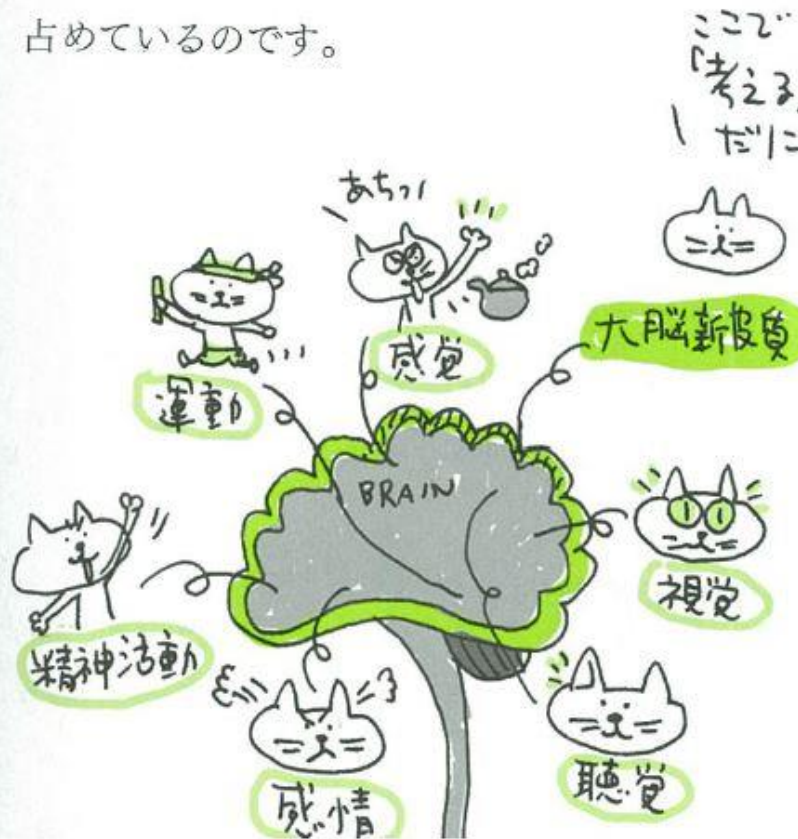 占めているのです。
ここで
「考える
だにこ
あちっ!
運動
感覚
大脳新皮質
BRAIN
精神活動
視覚
感情
聴覚